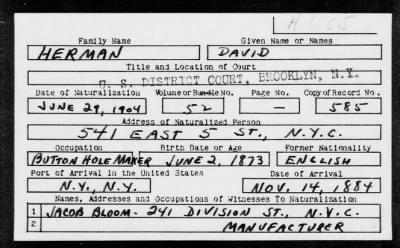 H655
Family Name Given Name or Names
HERMAN DAVID
Title and Location of Court
U. S. DISTRICT COURT, BROOKLYN, N.Y.
Date of Naturalization Volume or Bundle No. Page No. Copy of Record No.
JUNE 29, 1904 52 — 585
Address of Naturalized Person
541 EAST 5 ST., N.Y.C.
Occupation Birth Date or Age Former Nationality
BUTTON HOLE MAKER - JUNE 2, 1873 ENGLISH
Port of Arrival in the United States Date of Arrival
N.Y., N.Y. NOV. 14, 1884
Names, Addresses and Occupations of Witnesses To Naturalization
1 JACOB BLOOM - 241 DIVISION ST., N.Y.C.
2 MANUFACTURER